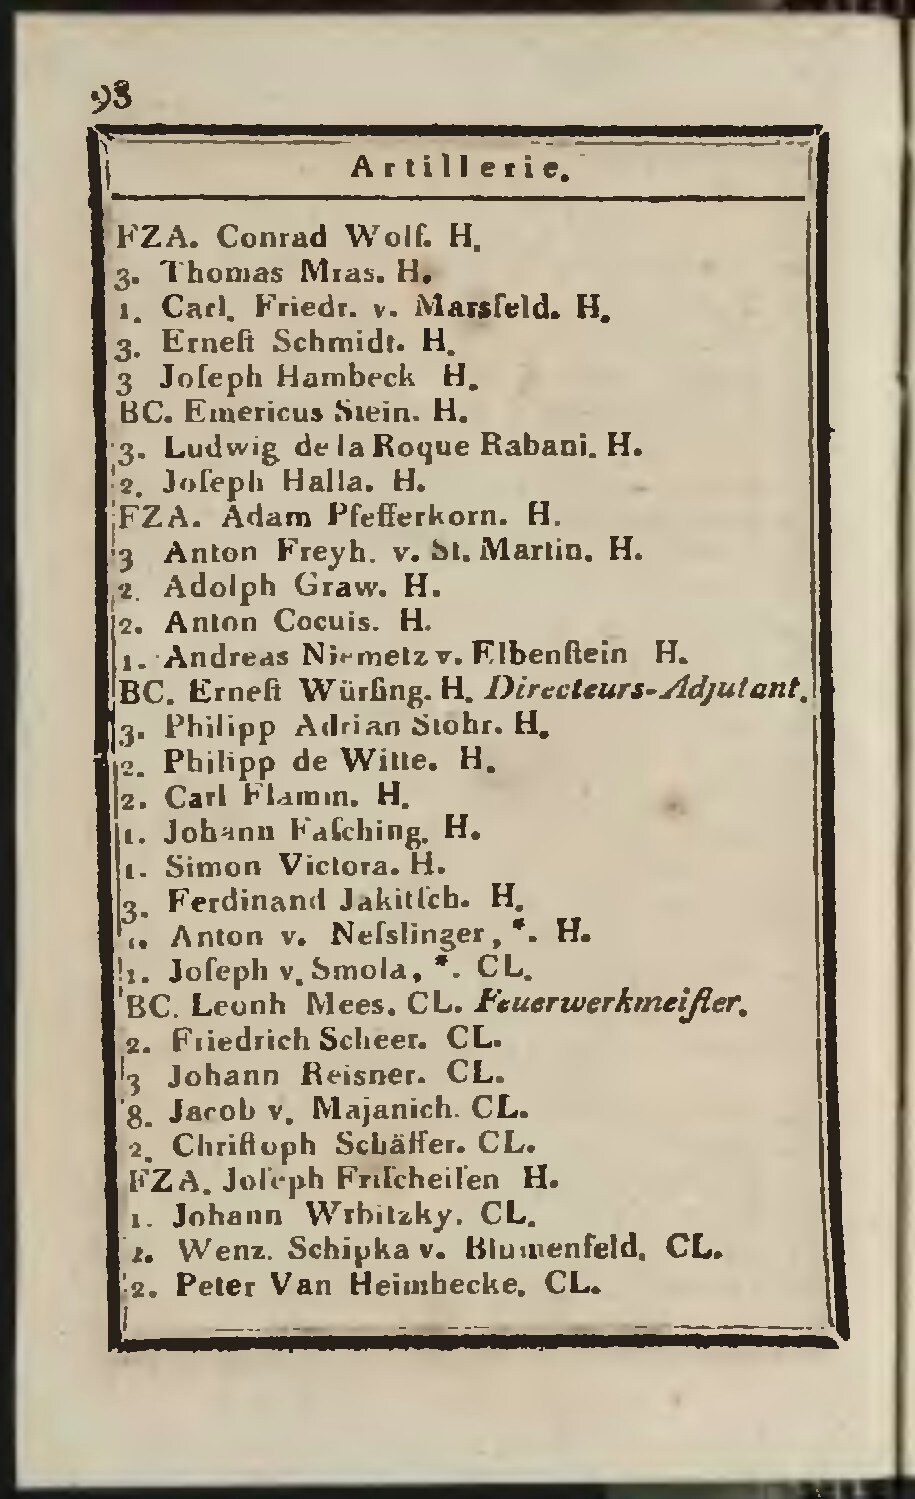 98
Artillerie.
FZA. Conrad Wolf. H.
3. Thomas Mras. H.
1. Carl. Friedr. v. Marsfeld. H.
3. Erneſt Schmidt. H.
3 Joſeph Hambeck H.
BC. Emericus Stein. H.
3. Ludwig de la Roque Rabani. H.
2. Joſeph Halla. H.
FZA. Adam Pfefferkorn. H.
3 Anton Freyh. v. St. Martin. H.
2. Adolph Graw. H.
2. Anton Cocuis. H.
1. Andreas Niemetz v. Elbenſtein H.
BC. Erneſt Würſing. H. Directeurs-Adjutant.
3. Philipp Adrian Stohr. H.
2. Philipp de Witte. H.
2. Carl Flamm. H.
1. Johann Faſching. H.
1. Simon Victora. H.
3. Ferdinand Jakitſch. H.
1. Anton v. Neſslinger, *. H.
1. Joſeph v. Smola, *. CL.
BC. Leonh Mees. CL. Feuerwerkmeiſter.
2. Friedrich Scheer. CL.
3 Johann Reisner. CL.
8. Jacob v. Majanich. CL.
2. Chriſtoph Schäffer. CL.
FZA. Joſeph Friſcheiſen H.
1. Johann Wrbitzky. CL.
1. Wenz. Schipka v. Blumenfeld. CL.
2. Peter Van Heimbecke. CL.